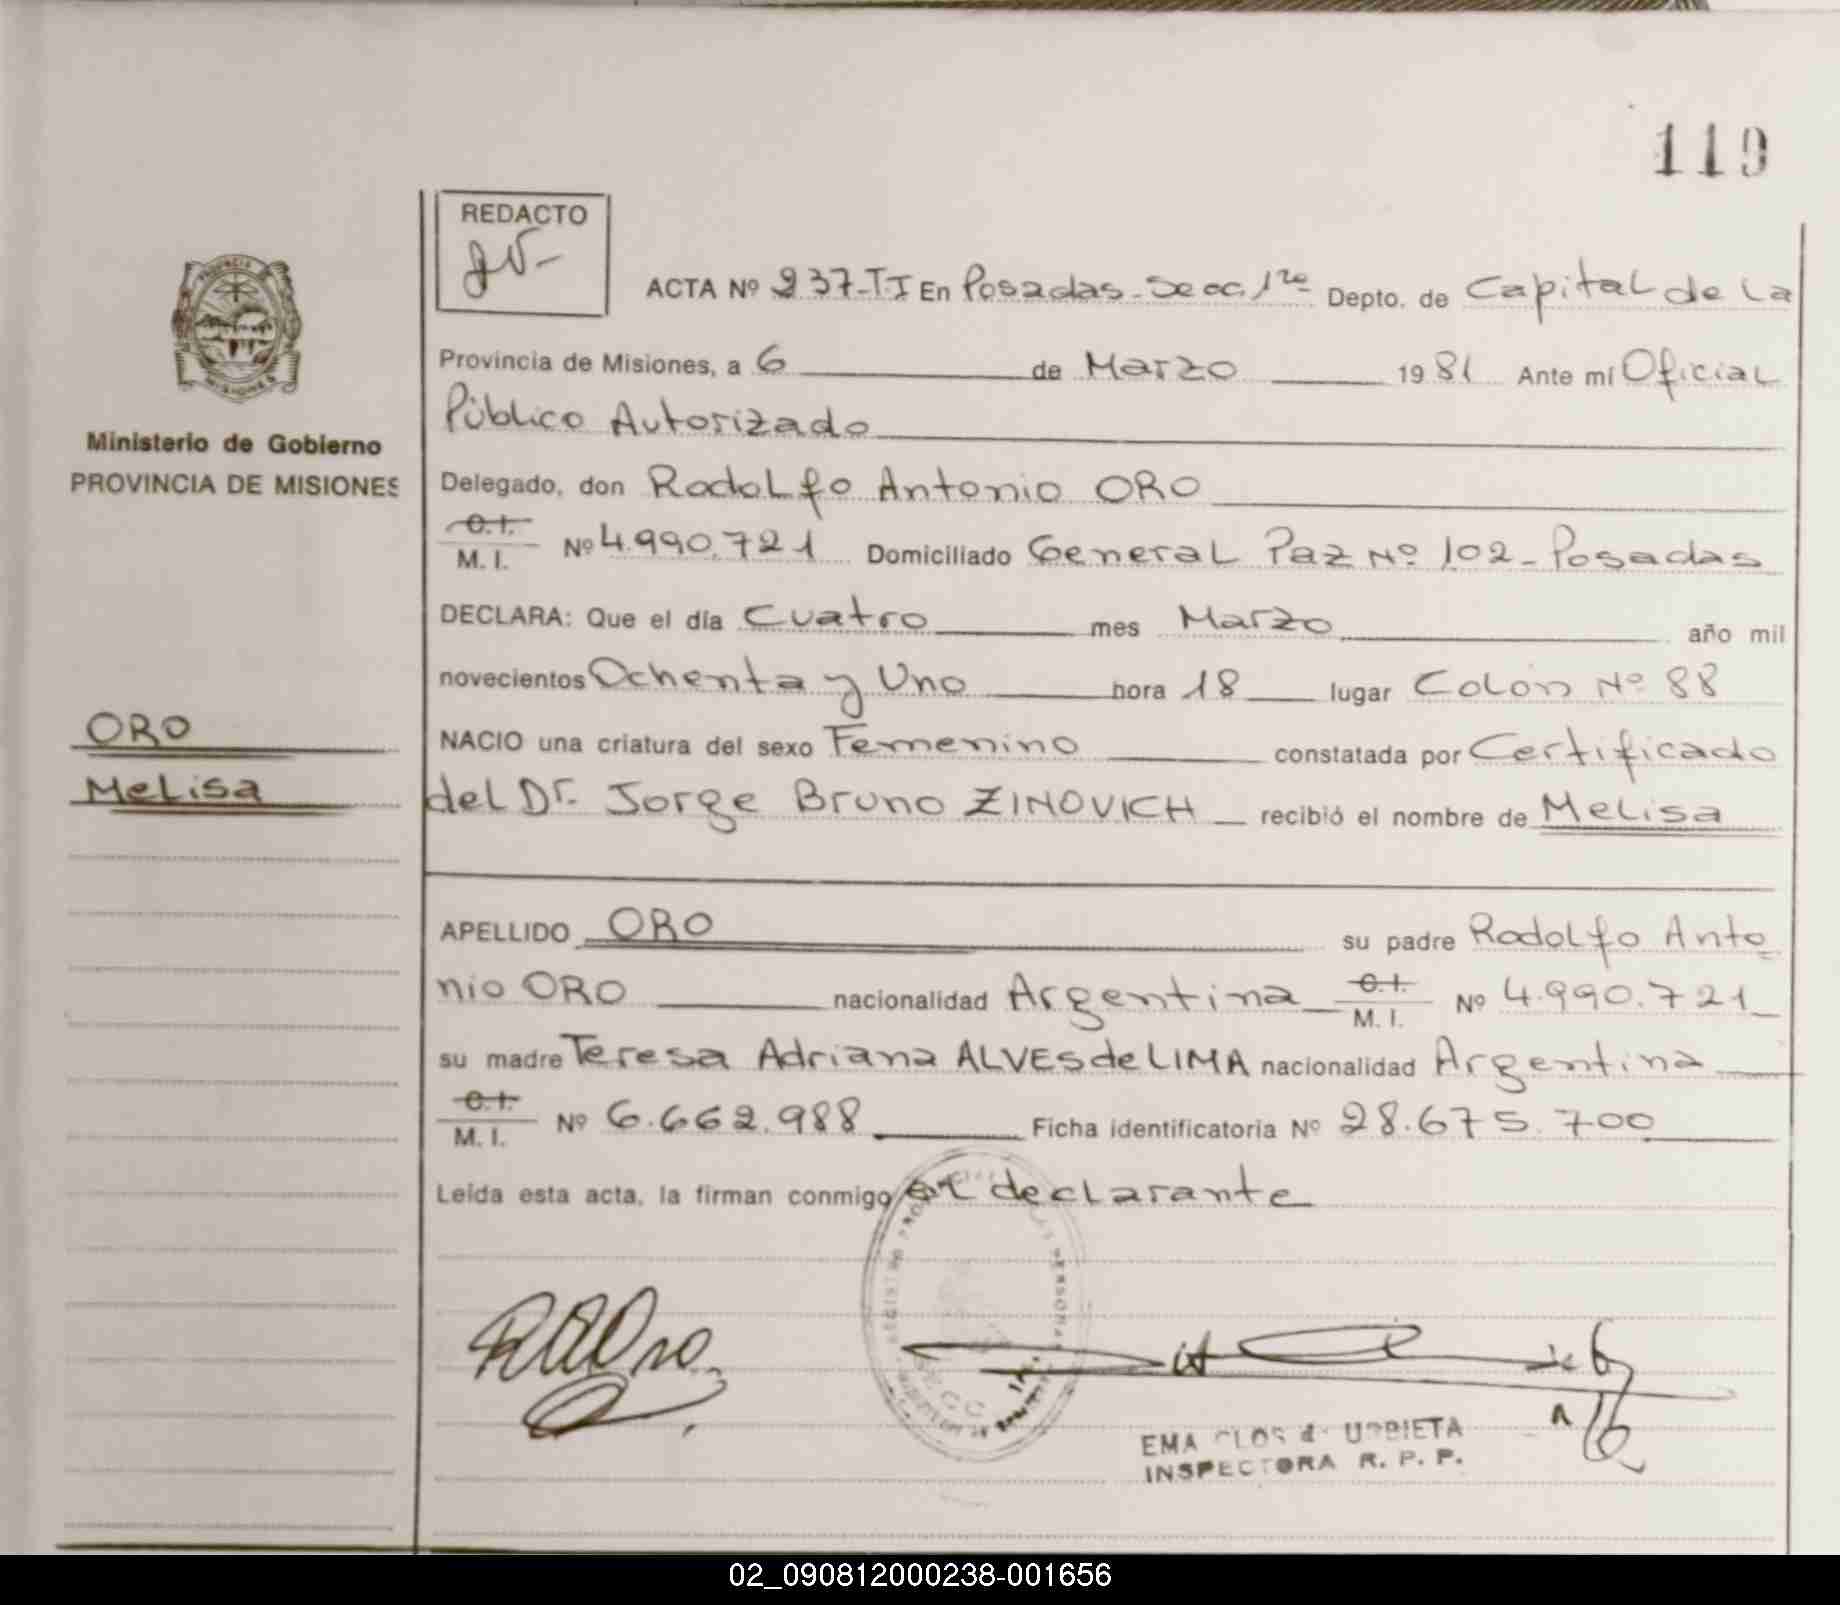 119
REDACTO
ACTA Nº 237-TI En Posadas-Secc. 1ra Depto. de Capital de La
Provincia de Misiones, a 6 de Marzo 1981 Ante mí Oficial
Público Autorizado
Ministerio de Gobierno
PROVINCIA DE MISIONES
Delegado, don Rodolfo Antonio ORO
C.I.
M. I. Nº 4.990.721 Domiciliado General Paz Nº 102-Posadas
DECLARA: Que el día Cuatro mes Marzo año mil
novecientos Ochenta y Uno hora 18 lugar Colón Nº 88
ORO
NACIO una criatura del sexo Femenino constatada por Certificado
Melisa
del Dr. Jorge Bruno ZINOVICH recibió el nombre de Melisa
APELLIDO ORO su padre Rodolfo Anto
nio ORO nacionalidad Argentina C.I. M. I. Nº 4.990.721
su madre Teresa Adriana ALVES de LIMA nacionalidad Argentina
C.I.
M. I. Nº 6.662.988 Ficha identificatoria Nº 28.675.700
Leída esta acta, la firman conmigo el declarante
EMA CLOS de URBIETA
INSPECTORA R. P. P.
02_090812000238-001656